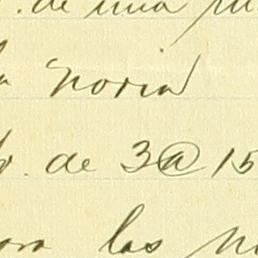 . de una
noria
. de 3@ 15
para las